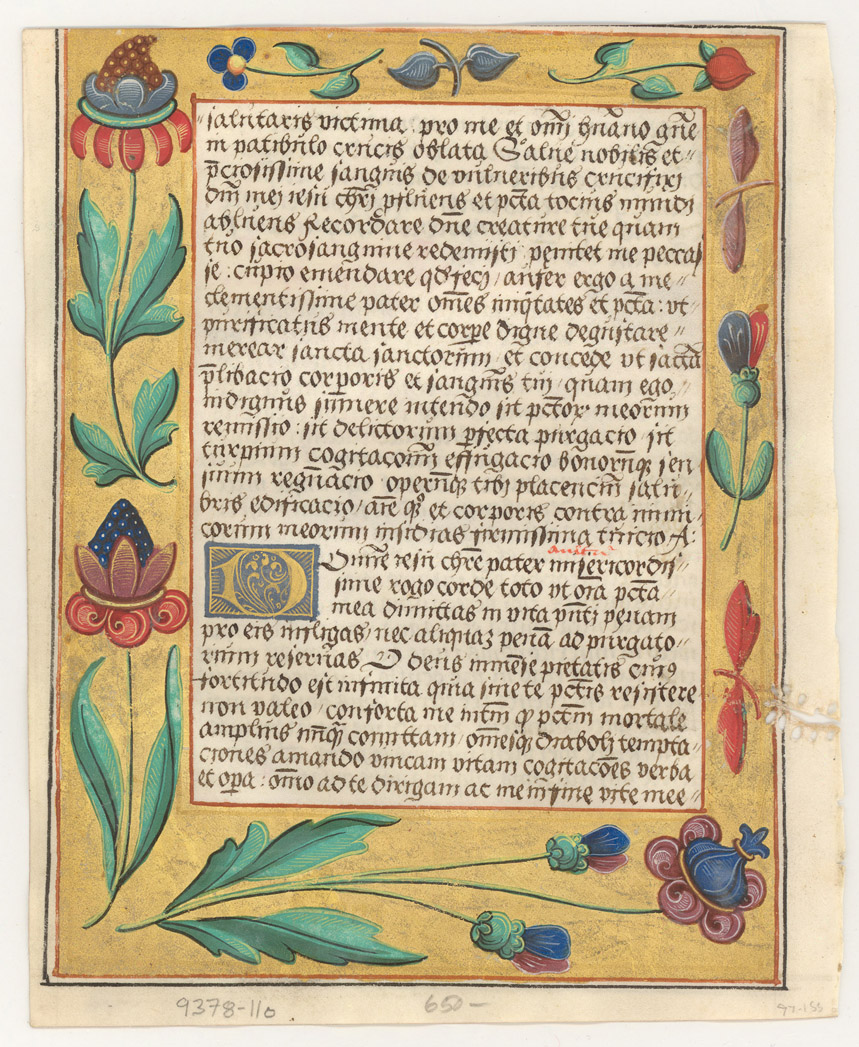 salutaris victima pro me et om̄i hūano gn̄e
in patibulo crucis oblata Salue nobilis et
p̄ciosissime sanguis de vulneribus crucifixi
dn̄i mei iesu chr̄i pfluens et pctā tocius mundi
abluens Recordare dn̄e creature tue quam
tuo sacrosanguine redemisti penitet me pecca
se : cupio emendare qd feci / aufer ergo a me
clementissime pater om̄es iniqtates et pctā : vt
purificatus mente et corpe digne degustare
merear sancta sanctorum / et concede vt sactā
p̄libacio corporis et sanguis tui / quam ego
indignus sumere intendo sit pctōr meorum
remissio : sit delictorum pfecta purgacio sit
turpium cogitacōm effugacio bonorūq sen
suum regn̄acio operumq tibi placenciū salu
bris edificacio / aīe q et corporis contra inimi
corum meorum insidias firmissima tuicio A :
Domine iesu chr̄e pater misericordis
sime rogo corde toto vt oīa pctā
mea dimittas in vita pn̄ti penam
pro eis infligas / nec aliquaz penā ad purgato
rium reseruas O deus inmēse pietatis cui9
fortitudo est infinita quia sine te pctīs resistere
non valeo / conforta me intm̄ q pctm̄ mortale
amplius nūq comittam / om̄esq diaboli tempta
ciones amando vincam vitam cogitacōes verba
et opa : om̄io ad te dirigam ac me in fine vite mee
9378-110
650-
97-155